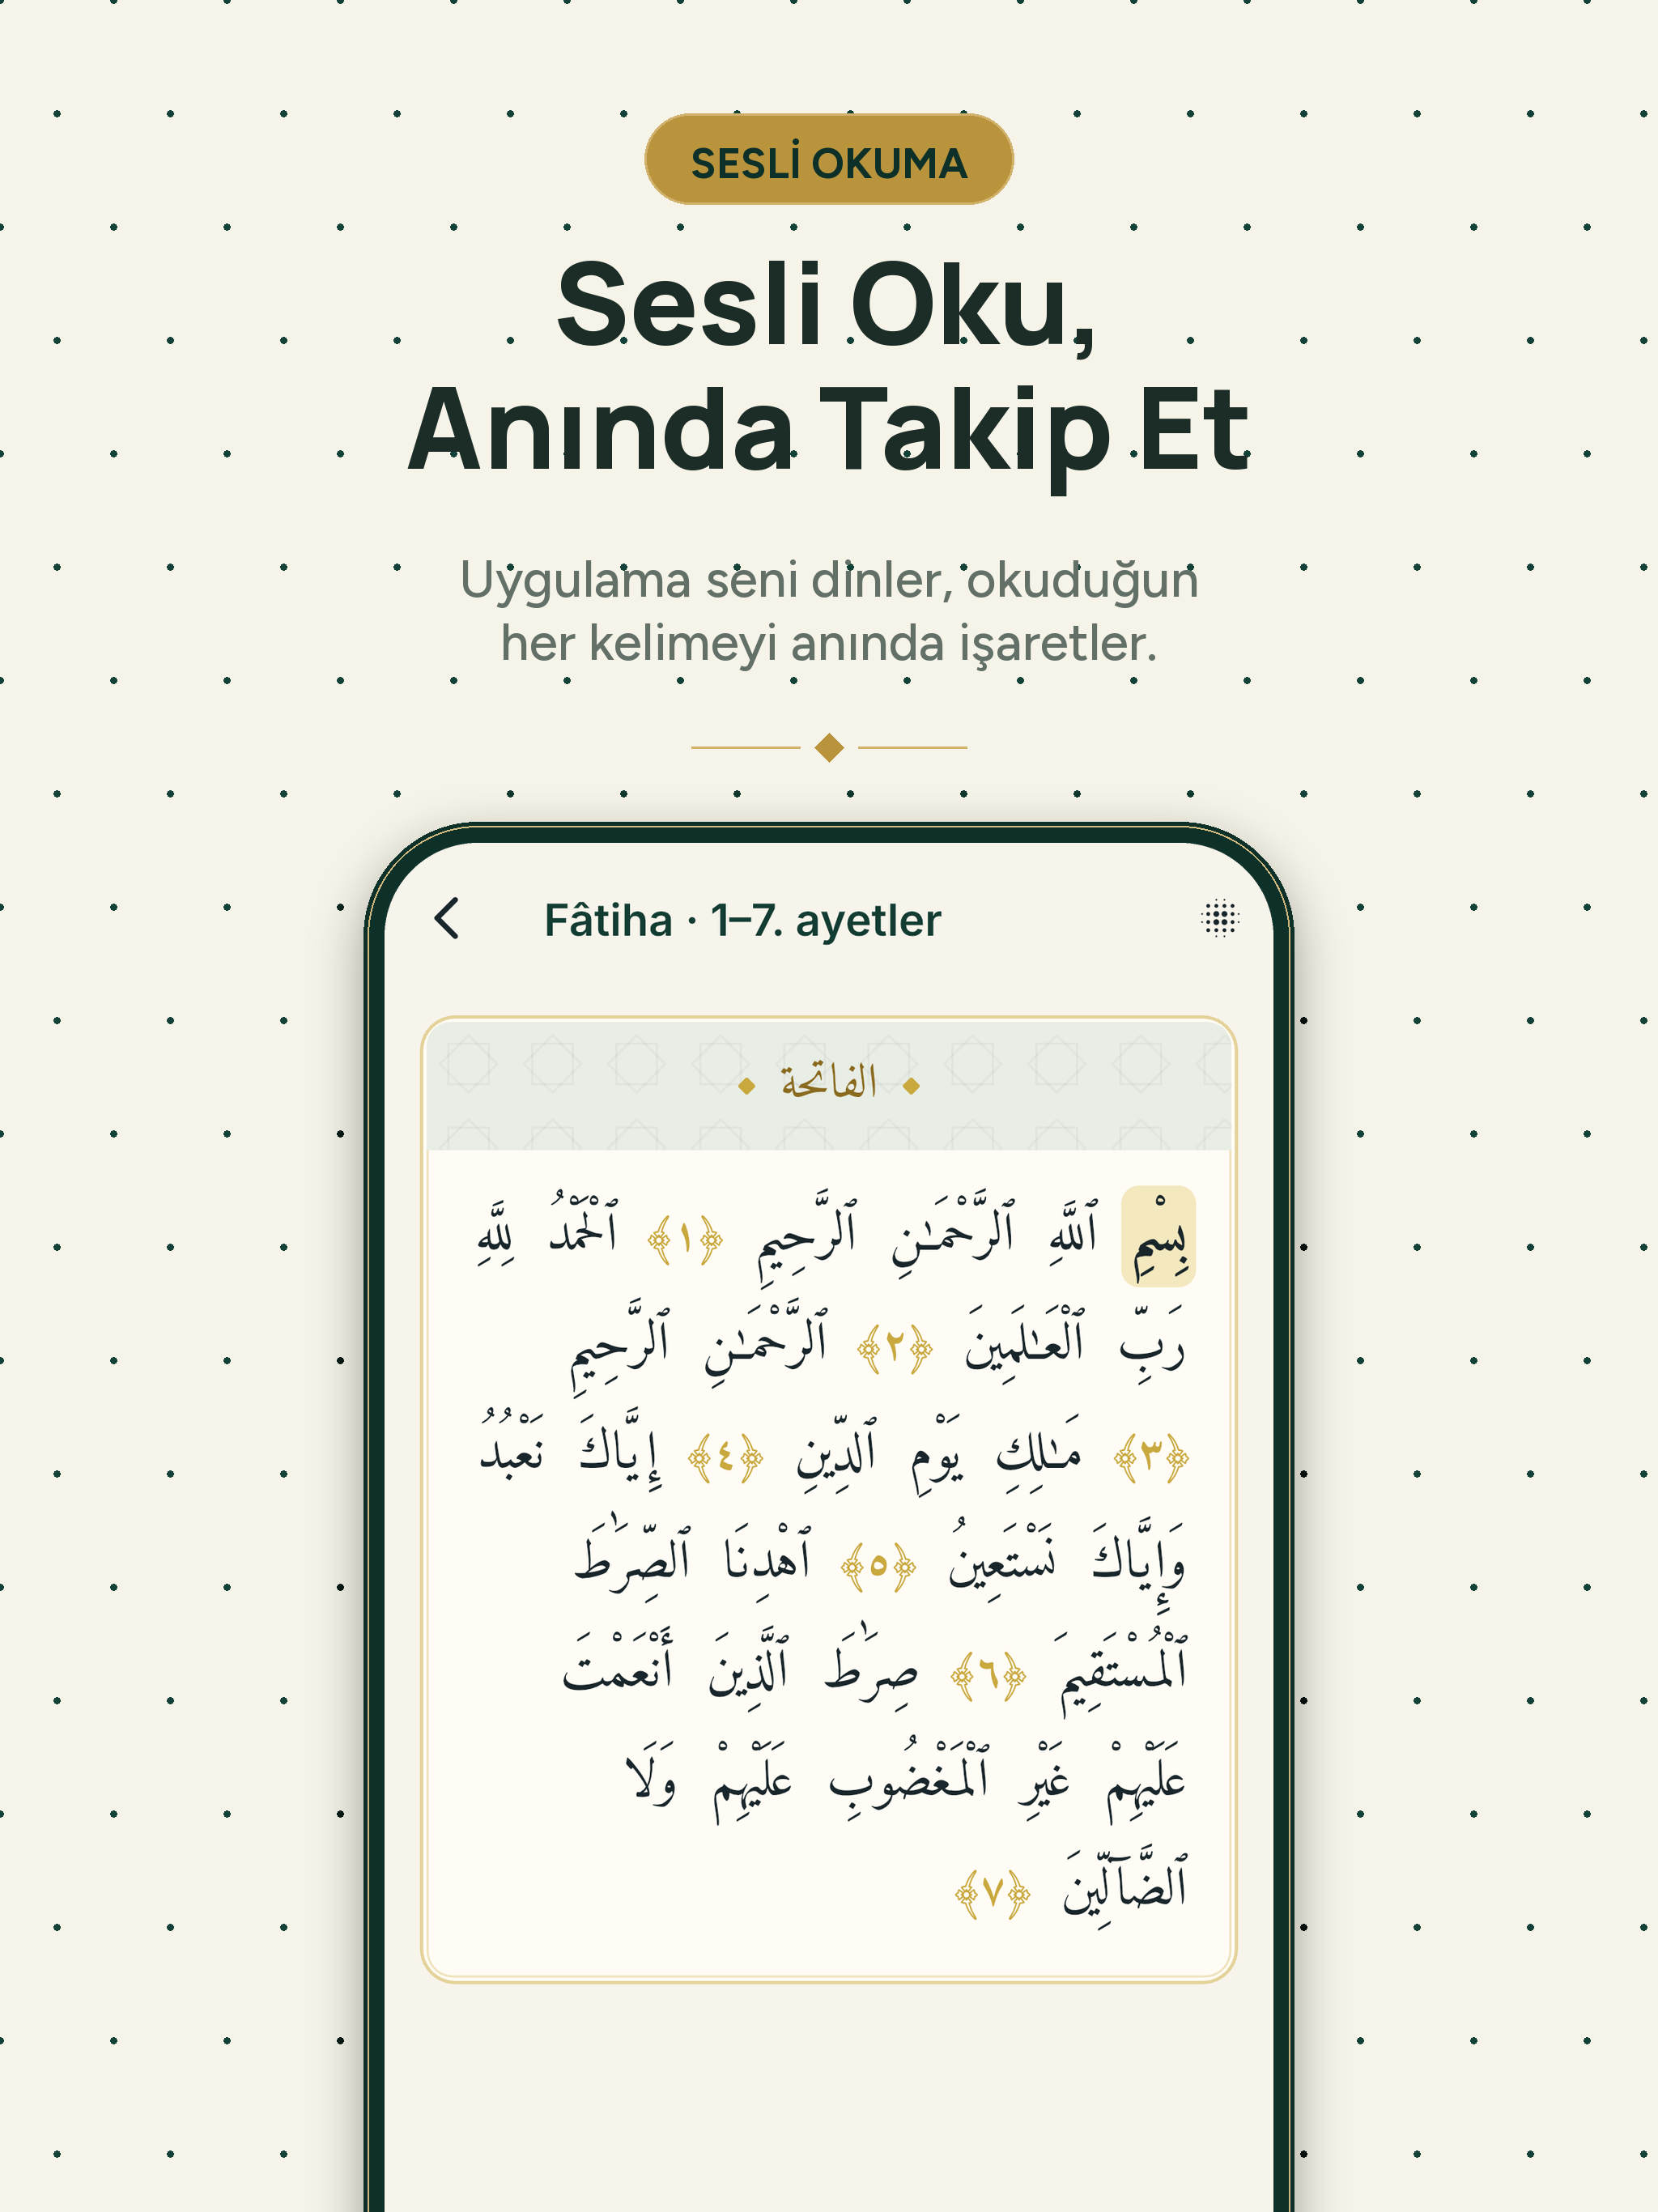 SESLİ OKUMA
Sesli Oku,
Anında Takip Et
Uygulama seni dinler, okuduğun
her kelimeyi anında işaretler.
Fâtiha · 1–7. ayetler
الفاتحة
بِسْمِ ٱللَّهِ ٱلرَّحْمَـٰنِ ٱلرَّحِيمِ ﴿١﴾ ٱلْحَمْدُ لِلَّهِ
رَبِّ ٱلْعَـٰلَمِينَ ﴿٢﴾ ٱلرَّحْمَـٰنِ ٱلرَّحِيمِ
﴿٣﴾ مَـٰلِكِ يَوْمِ ٱلدِّينِ ﴿٤﴾ إِيَّاكَ نَعْبُدُ
وَإِيَّاكَ نَسْتَعِينُ ﴿٥﴾ ٱهْدِنَا ٱلصِّرَٰطَ
ٱلْمُسْتَقِيمَ ﴿٦﴾ صِرَٰطَ ٱلَّذِينَ أَنْعَمْتَ
عَلَيْهِمْ غَيْرِ ٱلْمَغْضُوبِ عَلَيْهِمْ وَلَا
ٱلضَّآلِّينَ ﴿٧﴾